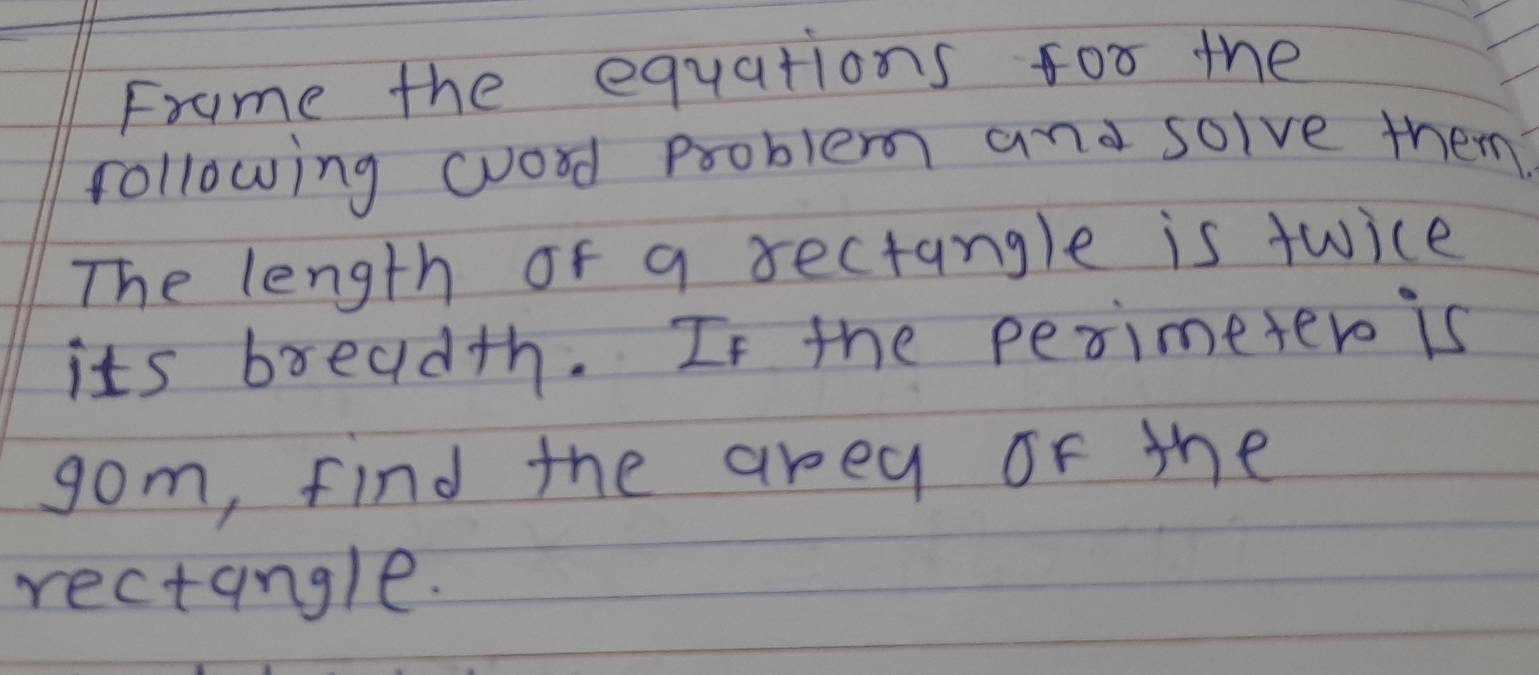 Frame the equations for the
following word problem and solve them.
The length of a rectangle is twice
its breadth. If the perimeter is
90m, find the area of the
rectangle.